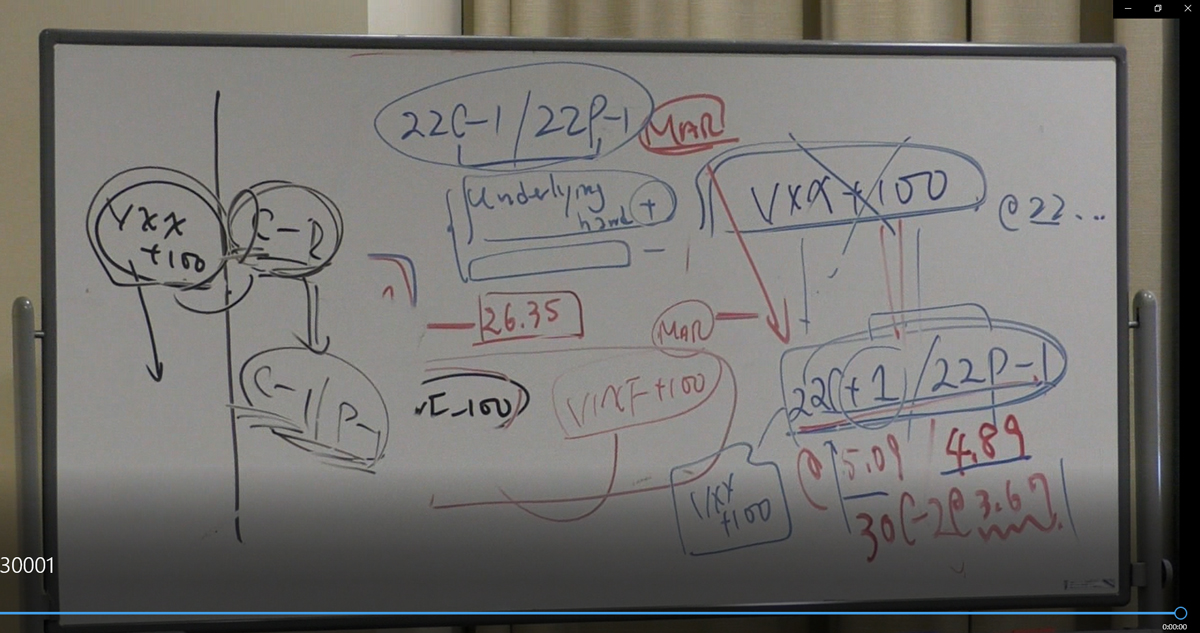 22C-1/22P-1 MAR
Underlying
hand +
VXX+100 @22...
VXX
+100
C-P
-
26.35
MAR
C-1/P-1
VIXF+100
22C+1/22P-1
@ 5.09 4.89
VXX
+100
30C-2@3.67
30001
0:00:00